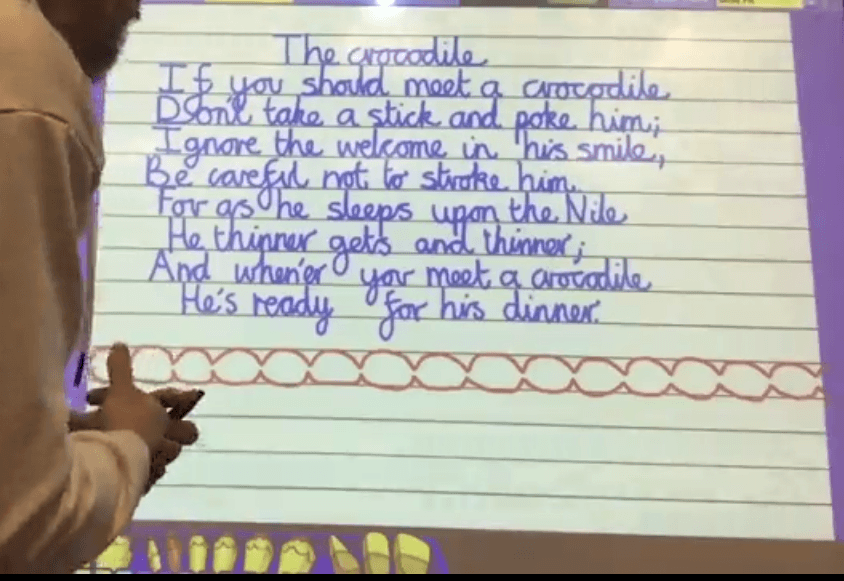 The crocodile
If you should meet a crocodile
Don't take a stick and poke him;
Ignore the welcome in his smile,
Be careful not to stroke him.
For as he sleeps upon the Nile
He thinner gets and thinner;
And when'er you meet a crocodile
He's ready for his dinner.